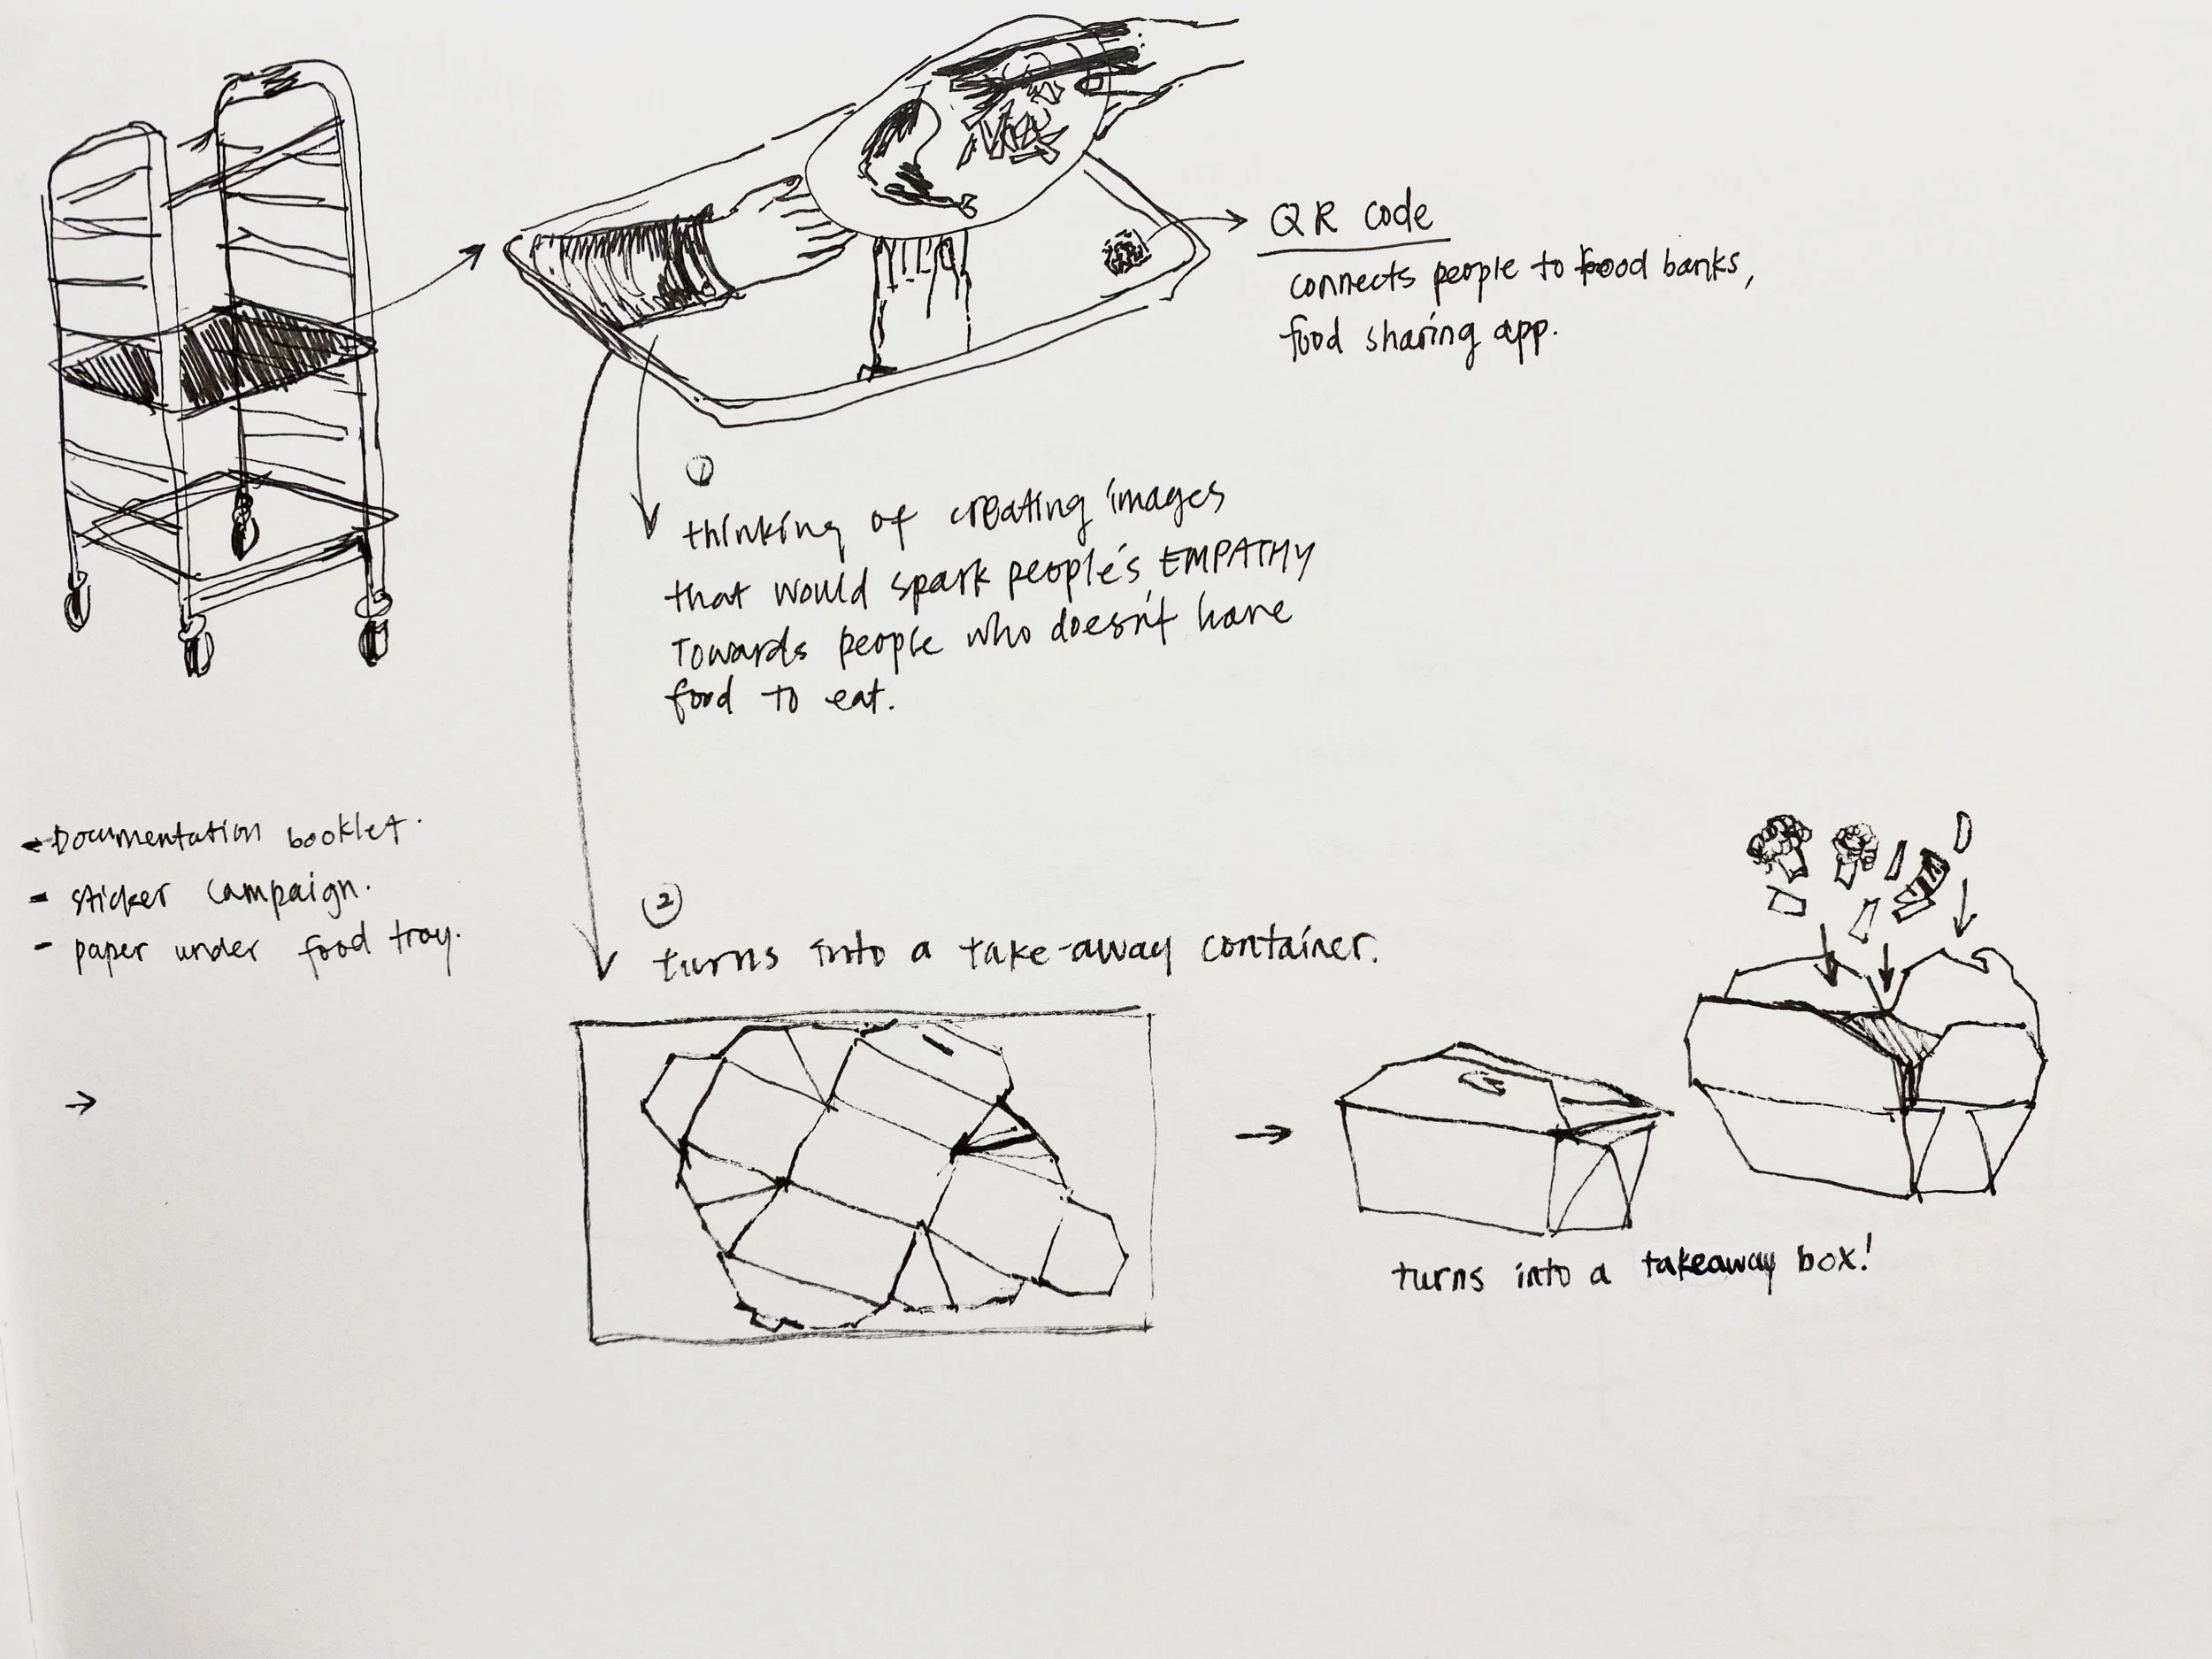 QR code
connects people to food banks,
food sharing app.
①
thinking of creating images
that would spark people's EMPATHY
Towards people who doesn't have
food to eat.
- Documentation booklet.
- sticker campaign.
- paper under food tray.
②
turns into a take-away container.
turns into a takeaway box!